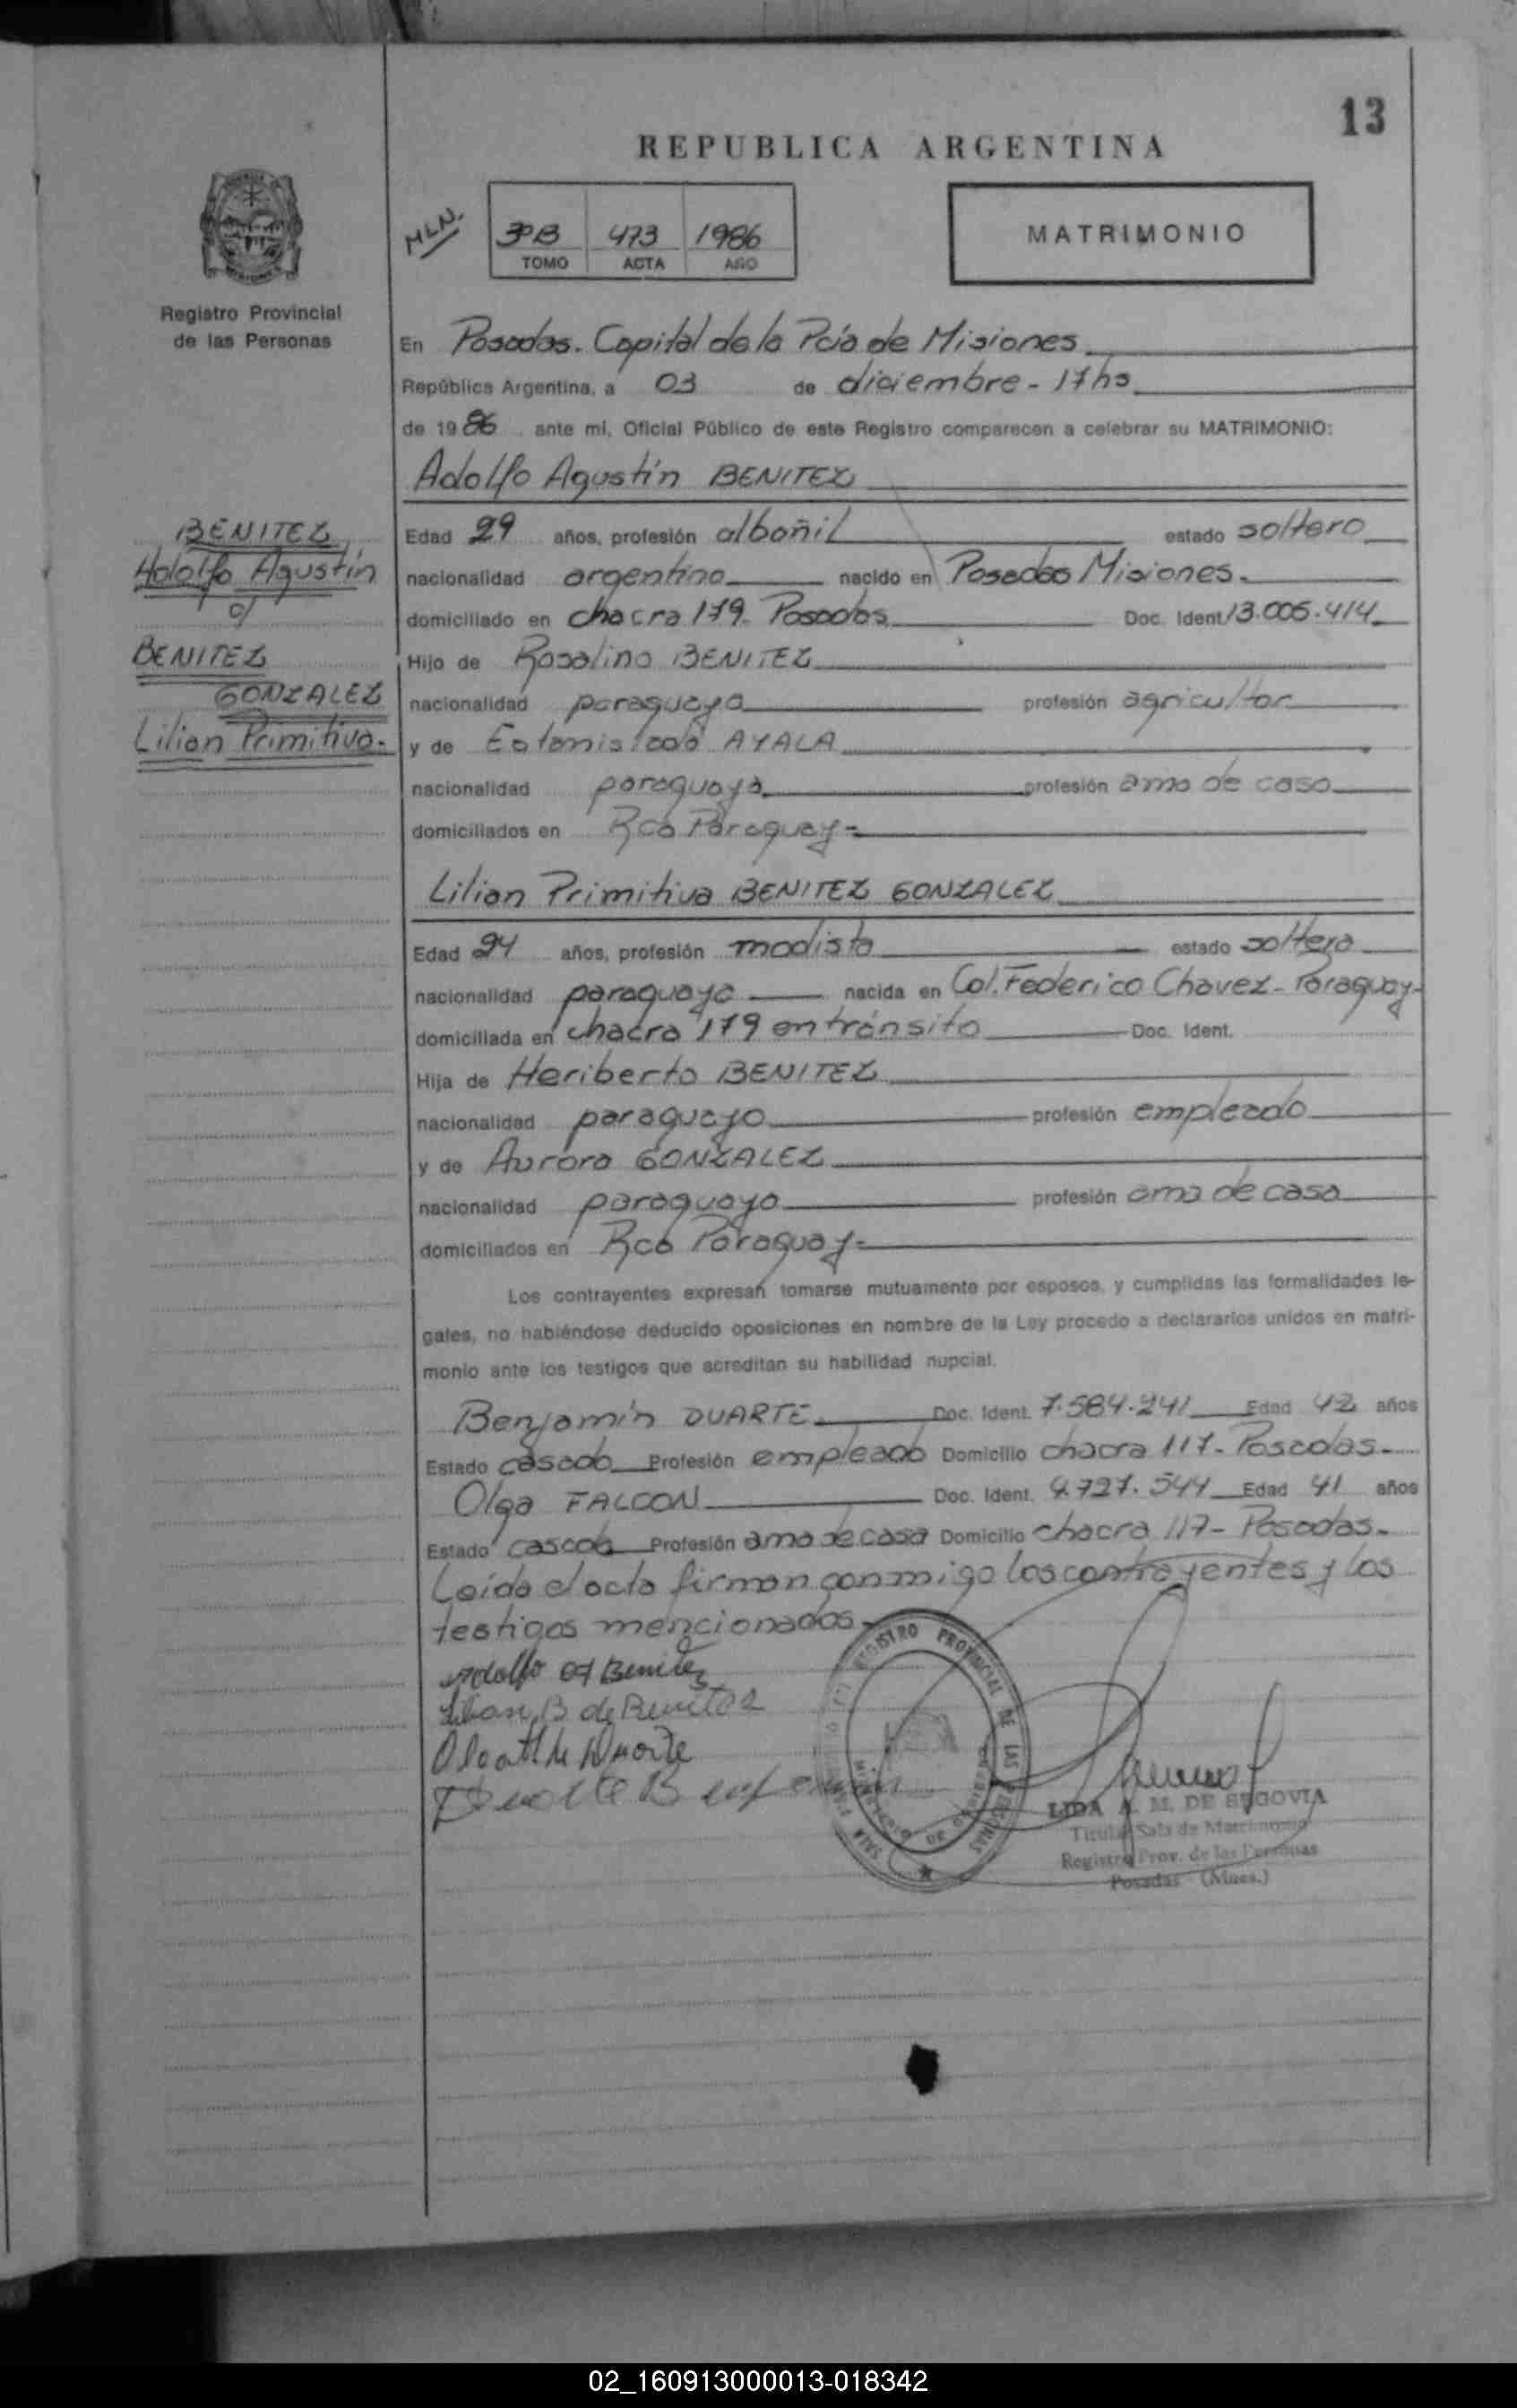 13
REPUBLICA ARGENTINA
MLN.
3ºB 473 1986
TOMO ACTA AÑO
MATRIMONIO
Registro Provincial
de las Personas
En Posadas. Capital de la Pcia de Misiones
República Argentina, a 03 de diciembre - 17 hs
de 1986 ante mi, Oficial Público de este Registro comparecen a celebrar su MATRIMONIO:
Adolfo Agustín BENITEZ
BENITEZ,
Adolfo Agustín
c/
BENITEZ
GONZALEZ
Lilian Primitiva.-
Edad 29 años, profesión albañil estado soltero
nacionalidad argentina nacido en Posadas Misiones.
domiciliado en chacra 179 - Posadas Doc. Ident. 13.005.414
Hijo de Rosalino BENITEZ
nacionalidad paraguaya profesión agricultor
y de Estanislada AYALA
nacionalidad paraguaya profesión ama de casa
domiciliados en Rca Paraguay-
Lilian Primitiva BENITEZ GONZALEZ
Edad 24 años, profesión modista estado soltera
nacionalidad paraguaya nacida en Col. Federico Chavez - Paraguay-
domiciliada en chacra 179 en tránsito Doc. Ident.
Hija de Heriberto BENITEZ
nacionalidad paraguayo profesión empleado
y de Aurora GONZALEZ
nacionalidad paraguaya profesión ama de casa
domiciliados en Rca Paraguay-
Los contrayentes expresan tomarse mutuamente por esposos, y cumplidas las formalidades le-
gales, no habiéndose deducido oposiciones en nombre de la Ley procedo a declararlos unidos en matri-
monio ante los testigos que acreditan su habilidad nupcial.
Benjamín DUARTE Doc. Ident. 7.584.241 Edad 42 años
Estado casado Profesión empleado Domicilio chacra 117 - Posadas.
Olga FALCON Doc. Ident. 4.727.544 Edad 41 años
Estado casada Profesión ama de casa Domicilio chacra 117 - Posadas.
Leída el acta firman conmigo los contrayentes y los
testigos mencionados
Adolfo A Benitez
Lilian B de Benitez
Olga de Duarte
Duarte Benjamin
REGISTRO PROVINCIAL DE LAS PERSONAS
LIDA A. M. DE SEGOVIA
Titular Sala de Matrimonio
Registro Prov. de las Personas
Posadas (Mnes.)
02_160913000013-018342